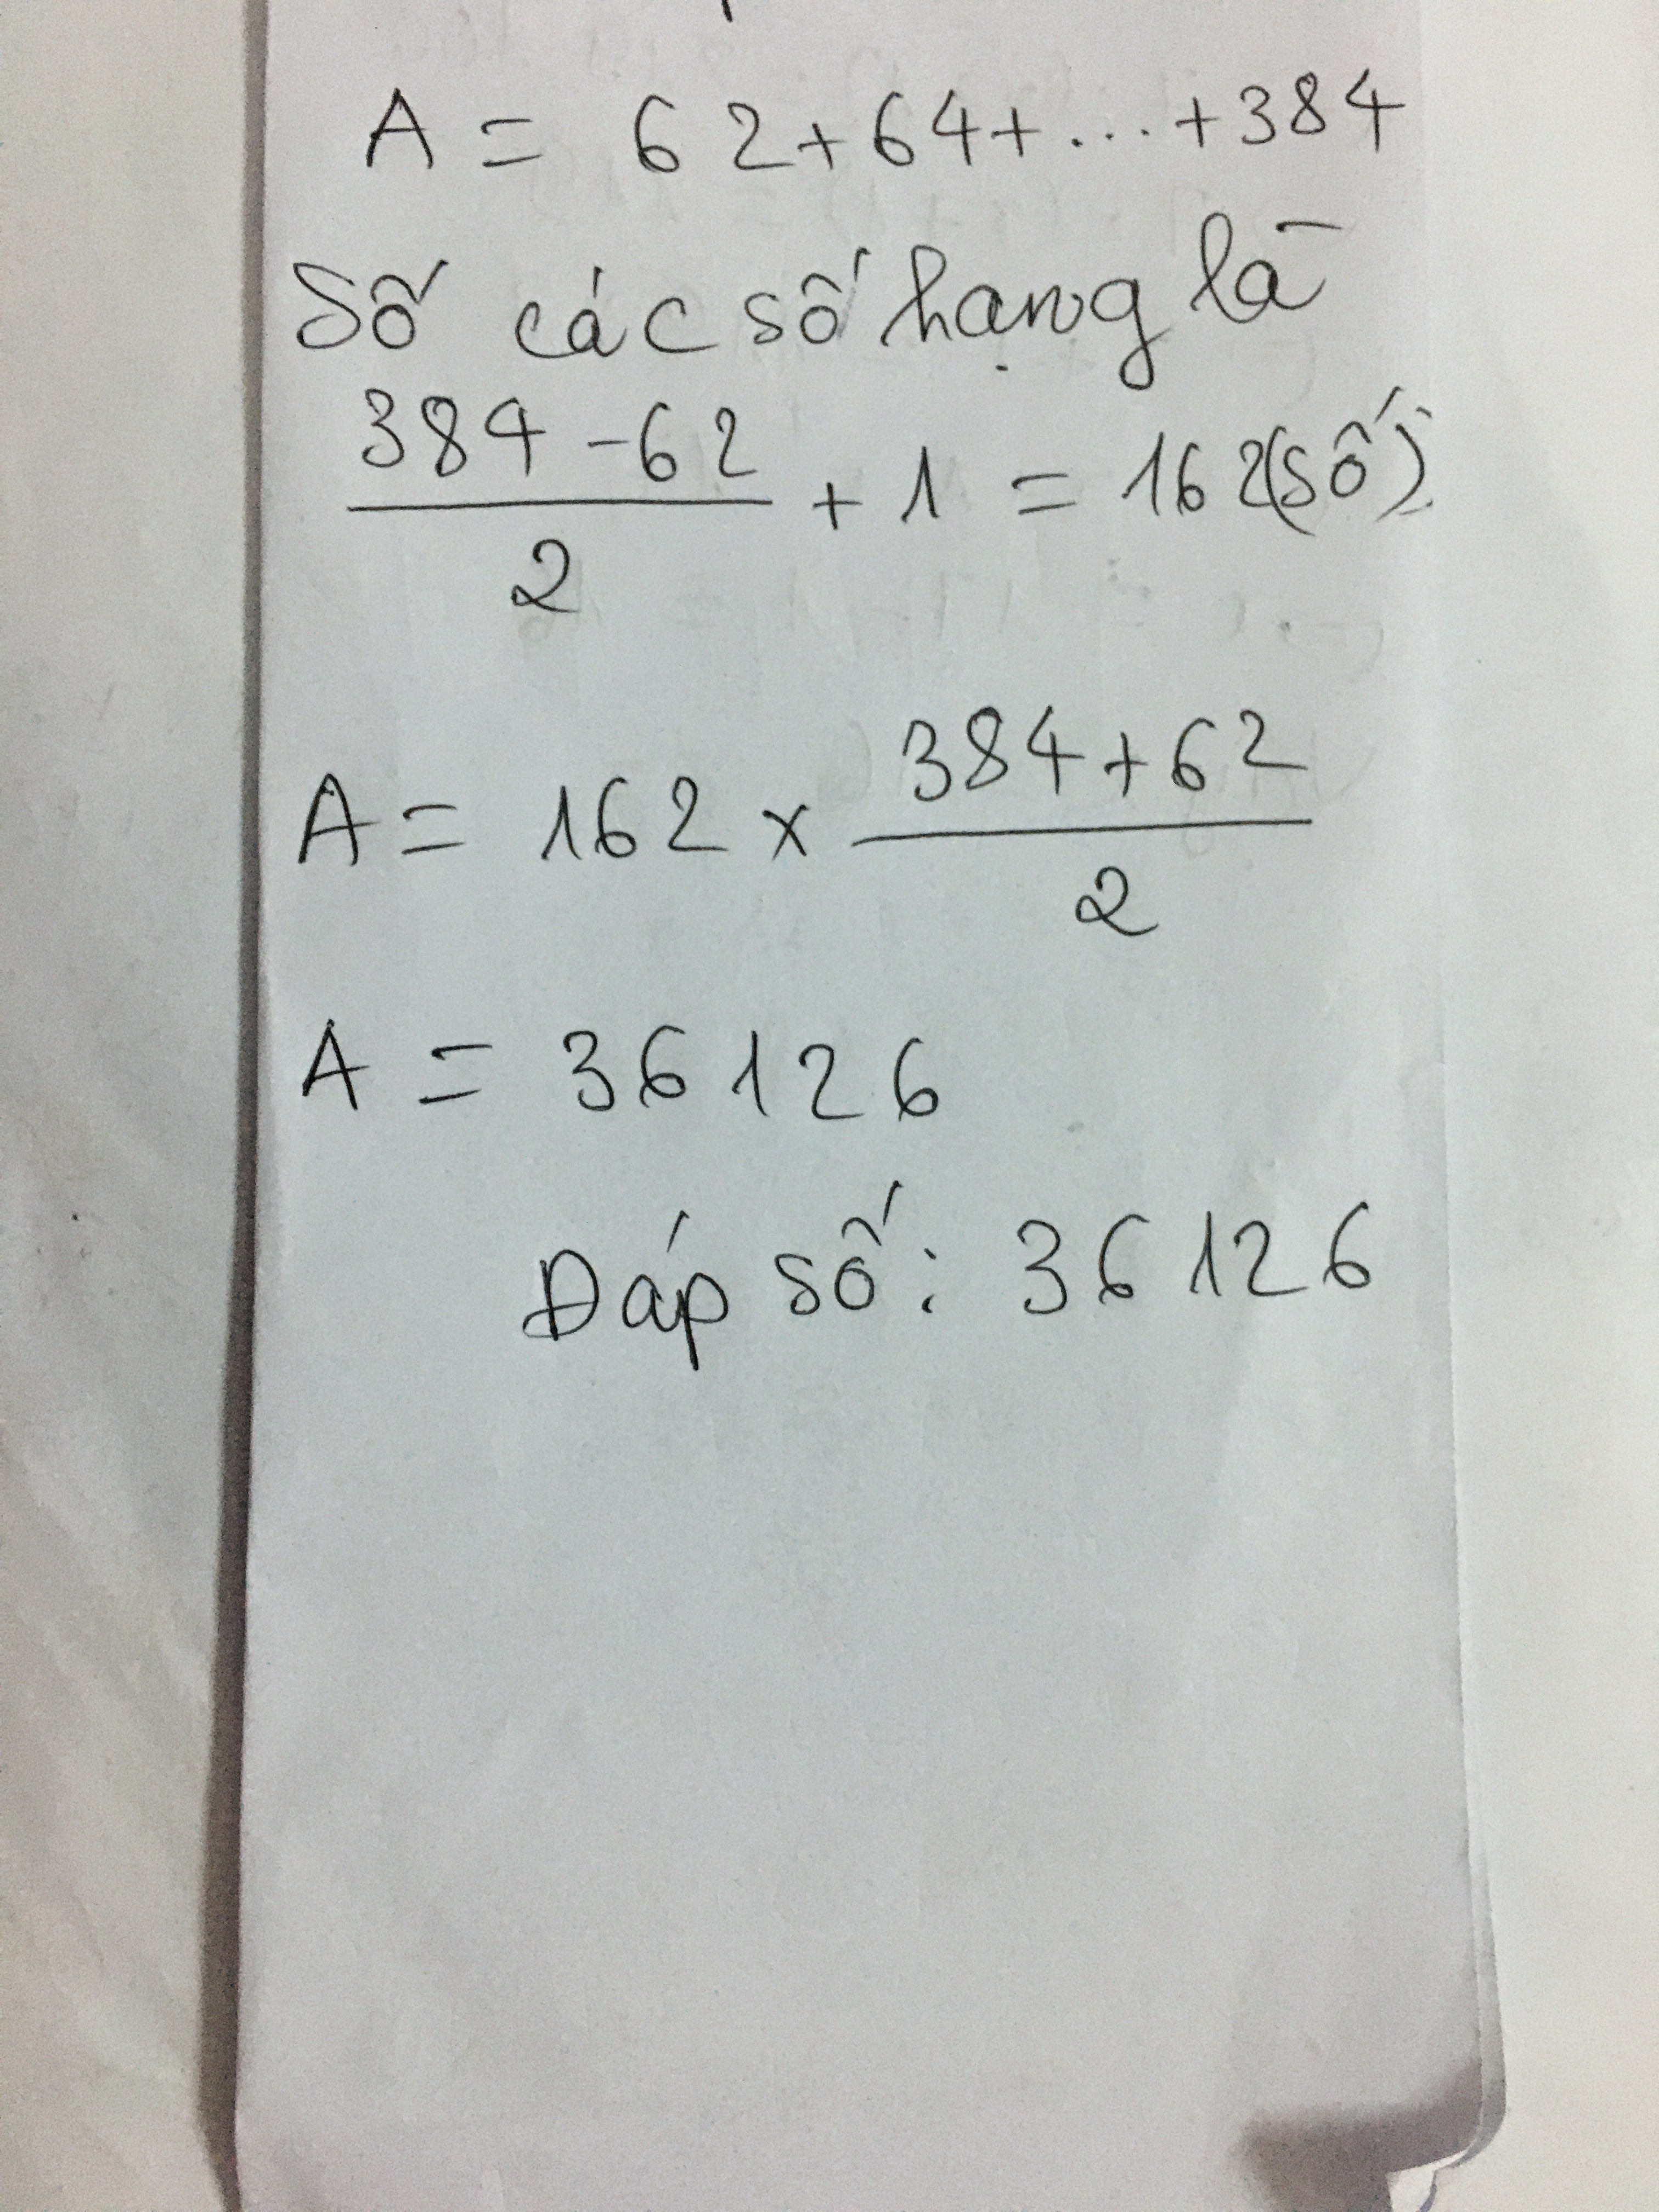 A = 62+64+...+384
Số các số hạng là
384-62
+ 1 = 162(số)
2
384+62
A = 162 x
2
A = 36126
Đáp số: 36126